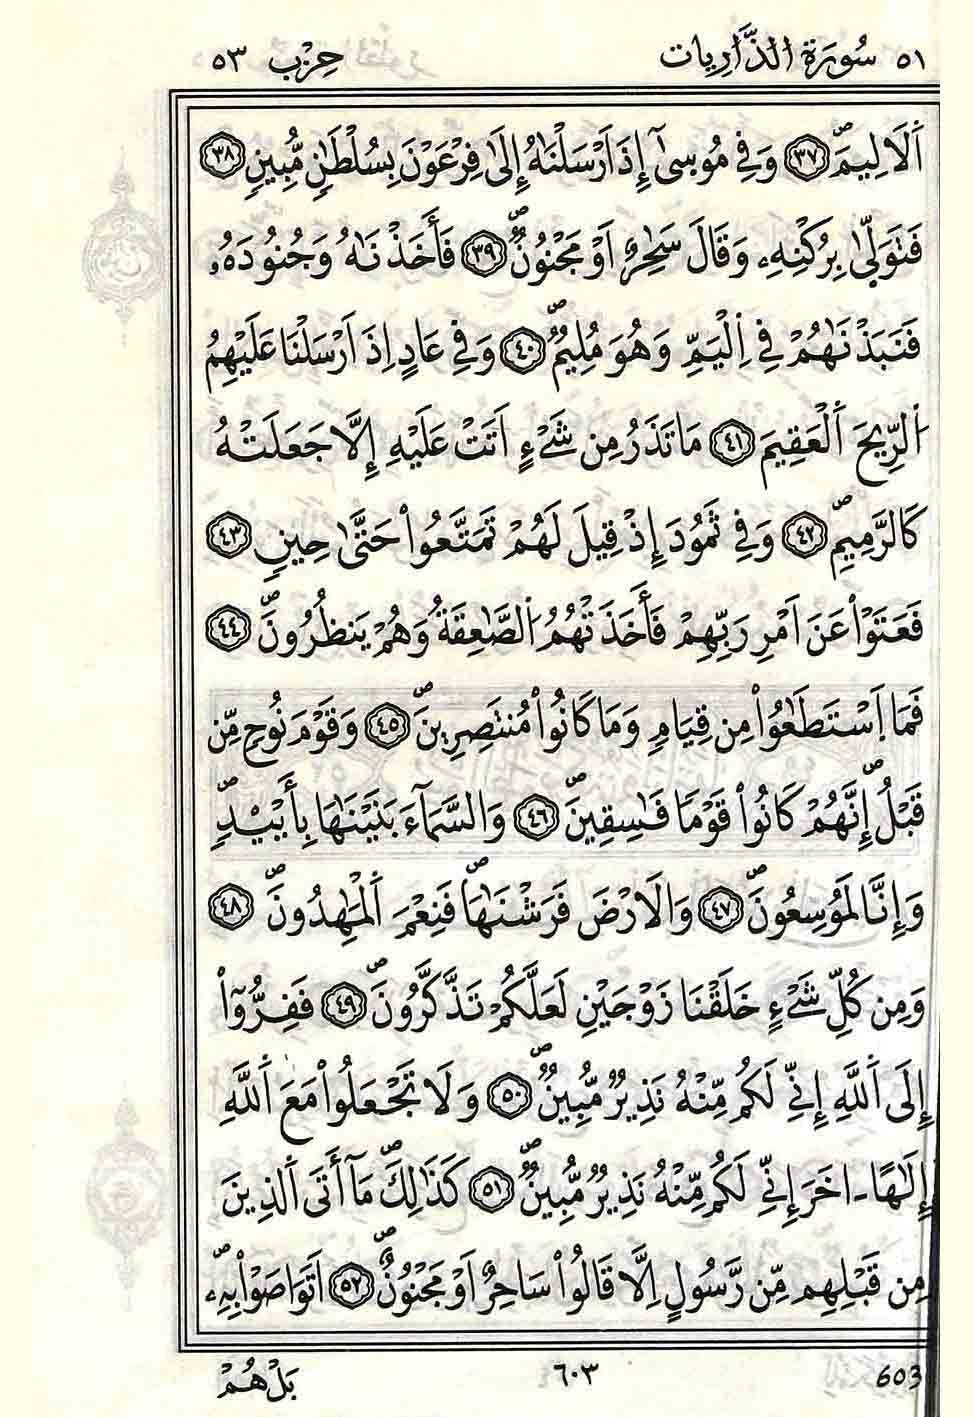 ٥١ سُورَةُ الذَّارِيَات حِزْب ٥٣
اَ۬لَالِيمَۖ ٣٧ وَفِے مُوس۪ىٰٓ إِذَ اَرْسَلْنَٰهُ إِلَىٰ فِرْعَوْنَ بِسُلْطَٰنٖ مُّبِينٖ ٣٨
فَتَوَلّ۪ىٰ بِرُكْنِهِۦ وَقَالَ سَٰحِرٌ اَوْ مَجْنُونٞۖ ٣٩ فَأَخَذْنَٰهُ وَجُنُودَهُۥ
فَنَبَذْنَٰهُمْ فِے اِ۬لْيَمِّ وَهُوَ مُلِيمٞۖ ٤٠ وَفِے عَادٍ اِذَ اَرْسَلْنَا عَلَيْهِمُ
اُ۬لرِّيحَ اَ۬لْعَقِيمَ ٤١ مَا تَذَرُ مِن شَےْءٍ اَتَتْ عَلَيْهِ إِلَّا جَعَلَتْهُ
كَالرَّمِيمِۖ ٤٢ وَفِے ثَمُودَ إِذْ قِيلَ لَهُمْ تَمَتَّعُواْ حَتَّىٰ حِينٖ ٤٣
فَعَتَوْاْ عَنَ اَمْرِ رَبِّهِمْ فَأَخَذَتْهُمُ اُ۬لصَّٰعِقَةُ وَهُمْ يَنظُرُونَۖ ٤٤
فَمَا اَ۪سْتَطَٰعُواْ مِن قِيَامٖ وَمَا كَانُواْ مُنتَصِرِينَۖ ٤٥ وَقَوْمَ نُوحٖ مِّن
قَبْلُۖ إِنَّهُمْ كَانُواْ قَوْماٗ فَٰسِقِينَۖ ٤٦ وَالسَّمَآءَ بَنَيْنَٰهَا بِأَيْيْدٖۖ
وَإِنَّا لَمُوسِعُونَۖ ٤٧ وَالَارْضَ فَرَشْنَٰهَاۖ فَنِعْمَ اَ۬لْمَٰهِدُونَۖ ٤٨
وَمِن كُلِّ شَےْءٍ خَلَقْنَا زَوْجَيْنِ لَعَلَّكُمْ تَذَّكَّرُونَۖ ٤٩ فَفِرُّوٓاْ
إِلَى اَ۬للَّهِ إِنِّے لَكُم مِّنْهُ نَذِيرٞ مُّبِينٞۖ ٥٠ وَلَا تَجْعَلُواْ مَعَ اَ۬للَّهِ
إِلَٰهاً ـ اخَرَ إِنِّے لَكُم مِّنْهُ نَذِيرٞ مُّبِينٞۖ ٥١ كَذَٰلِكَۖ مَآ أَتَى اَ۬لذِينَ
مِن قَبْلِهِم مِّن رَّسُولٍ اِلَّا قَالُواْ سَاحِرٌ اَوْ مَجْنُونٌۖ ٥٢ اَتَوَاصَوْاْ بِهِۦۖ
بَلْ هُمْ ٦٠٣ 603